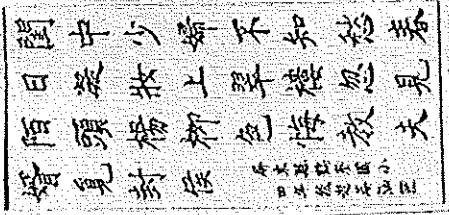 閨中少婦不知愁春
日凝妝上翠樓忽見
陌頭楊柳色悔教夫
婿覓封侯